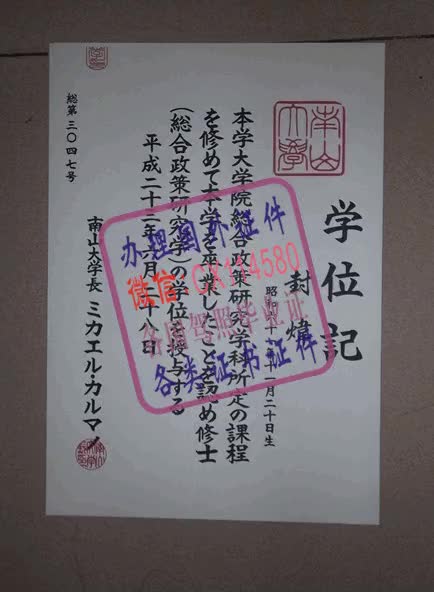 南山
大學
学位記
封 煒
昭和 年十一月二十日生
本学大学院総合政策研究学科所定の課程
を修めて本学を卒業したことを認め修士
(総合政策研究学)の学位を授与する
平成二十三年六月二十八日
南山大学長 ミカエル・カルマノ
総第三〇四七号
办理国外证件
微信:
各国驾照毕业证
各类证书证件